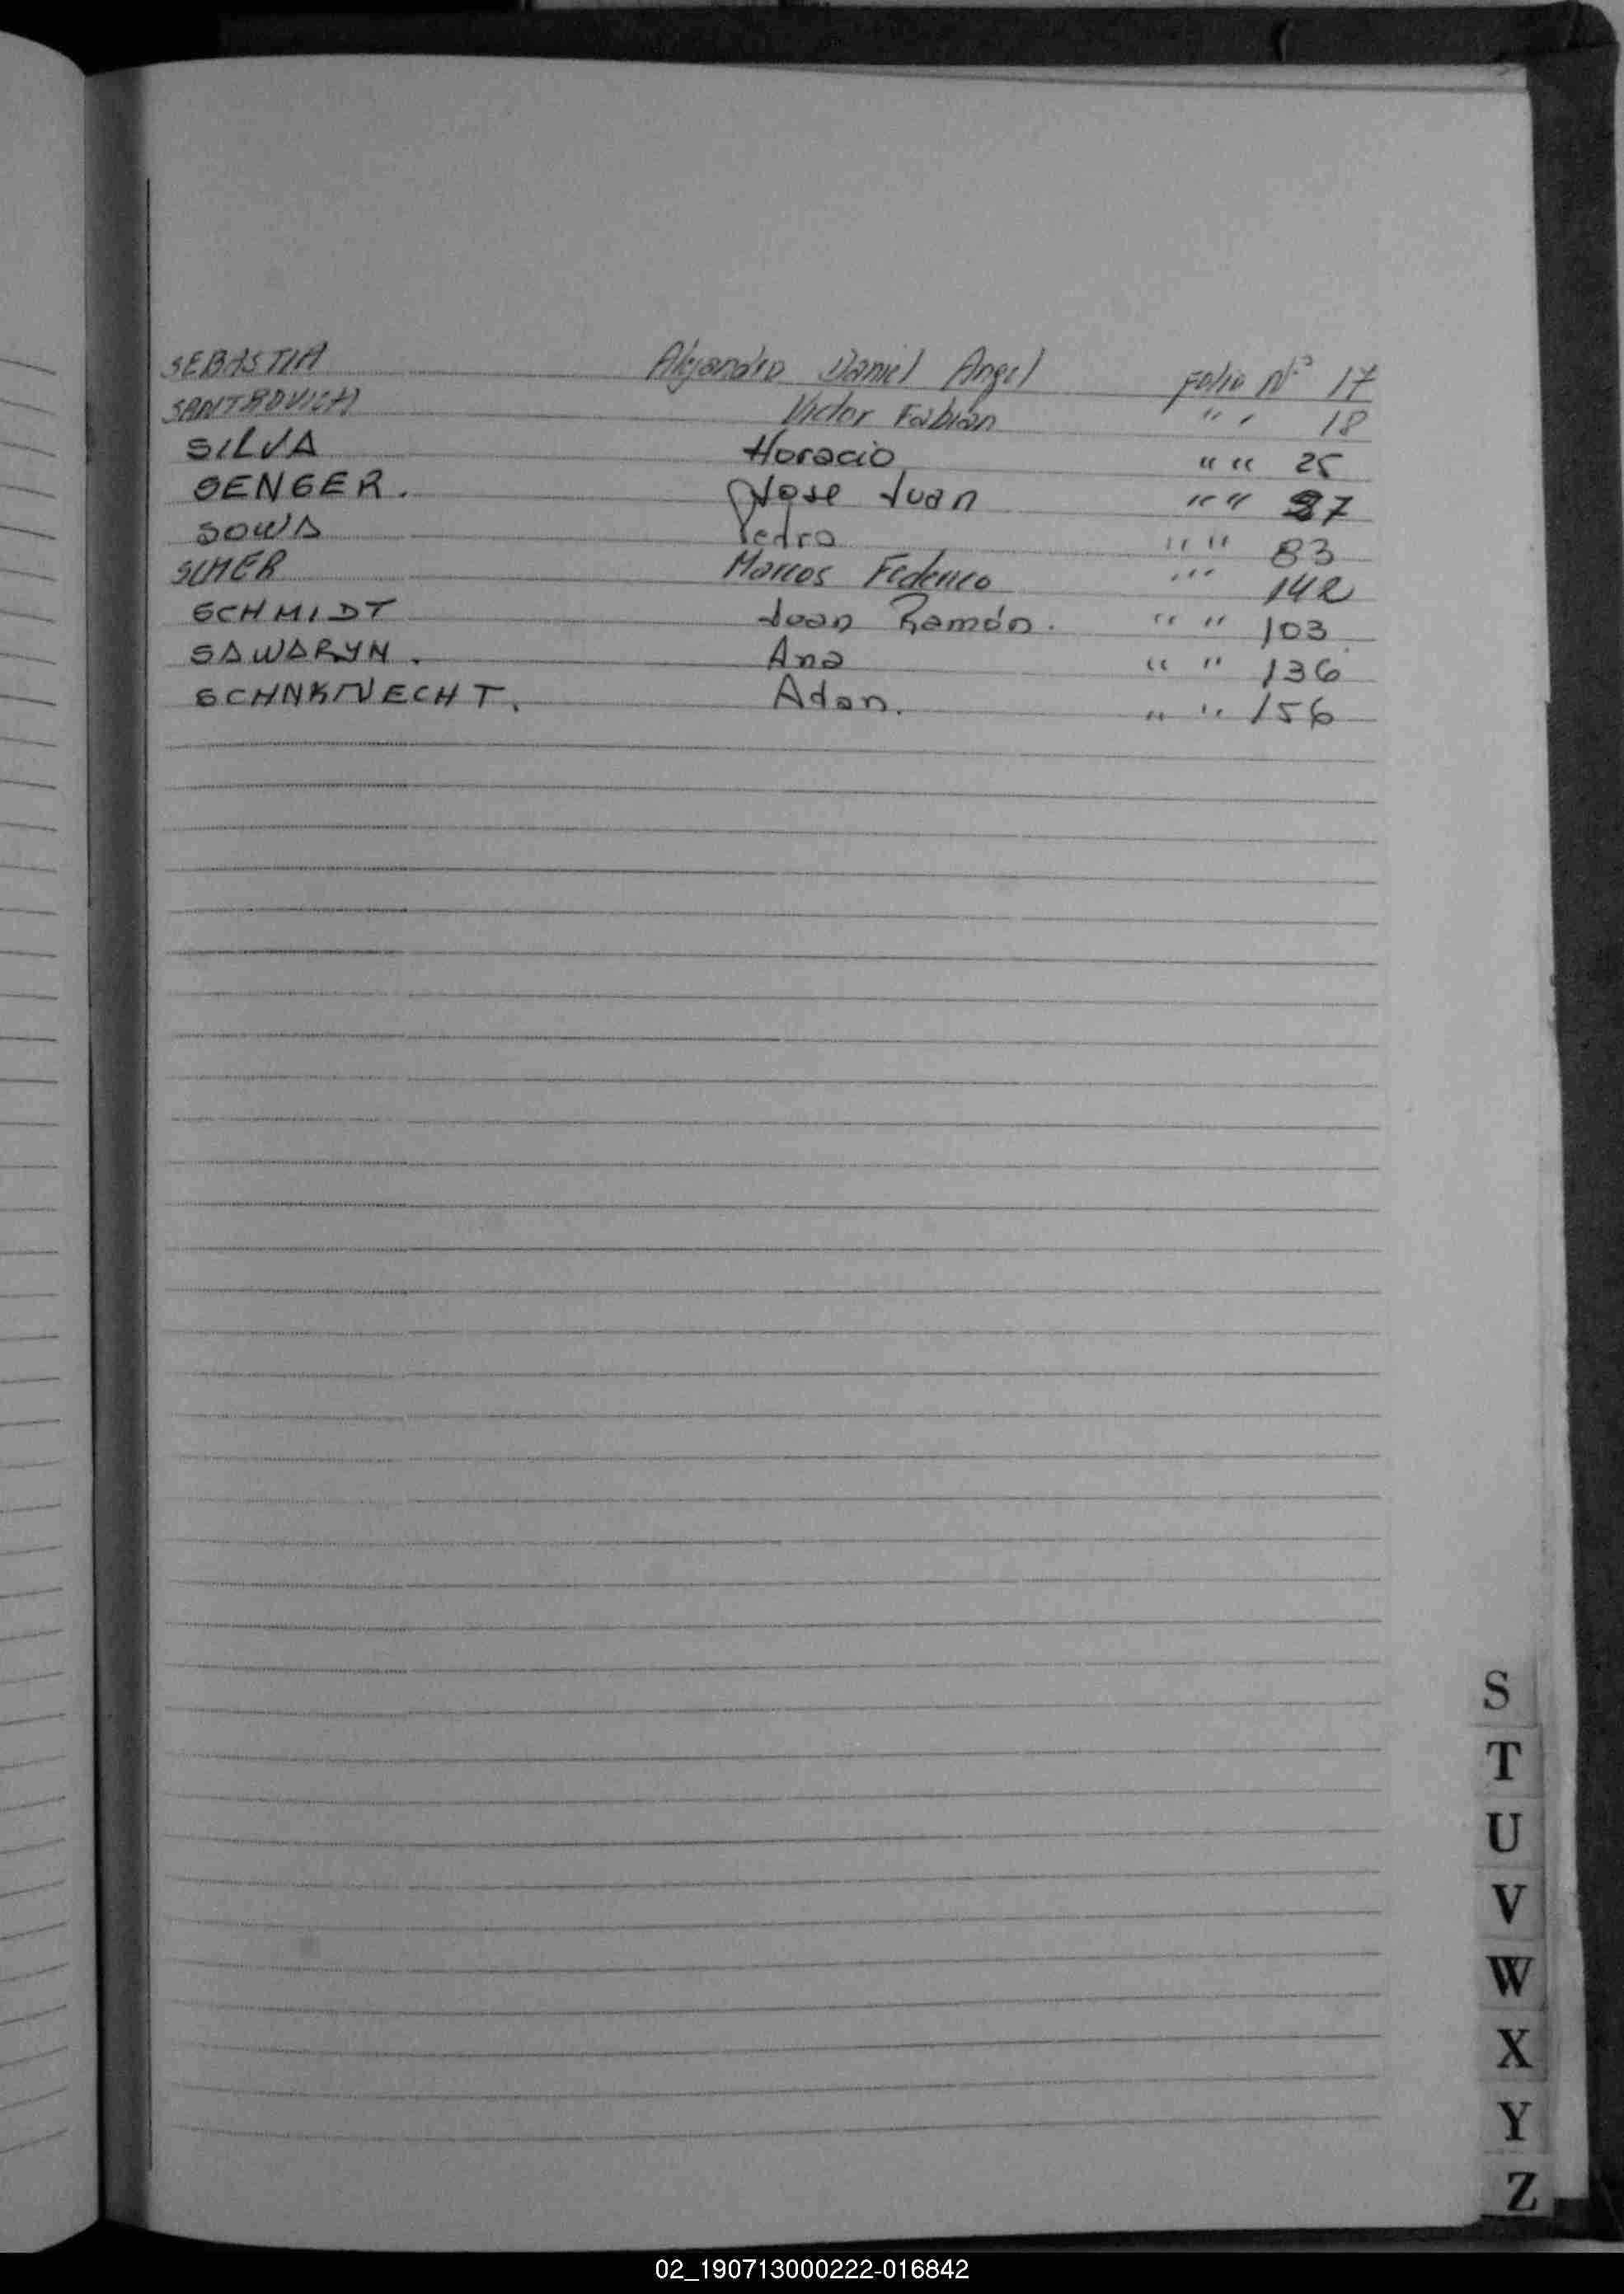 SEBASTIA Alejandro Daniel Angel Folio Nº 17
SANTROVICH Victor Fabián " " 18
SILVA Horacio " " 25
SENGER. Jose Juan " " 27
SOWA Pedro " " 83
Marcos Federico " " 142
SCHMIDT Juan Ramón. " " 103
SAWARYN. Ana " " 136
SCHNKNECHT. Adan. " " 156
S
T
U
V
W
X
Y
Z
02_190713000222-016842